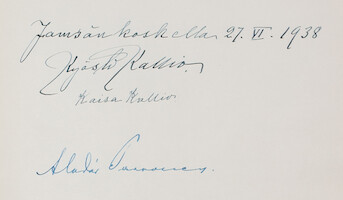 Jämsänkoskella 27. VI. 1938
Kyösti Kallio.
Kaisa Kallio
Aladár